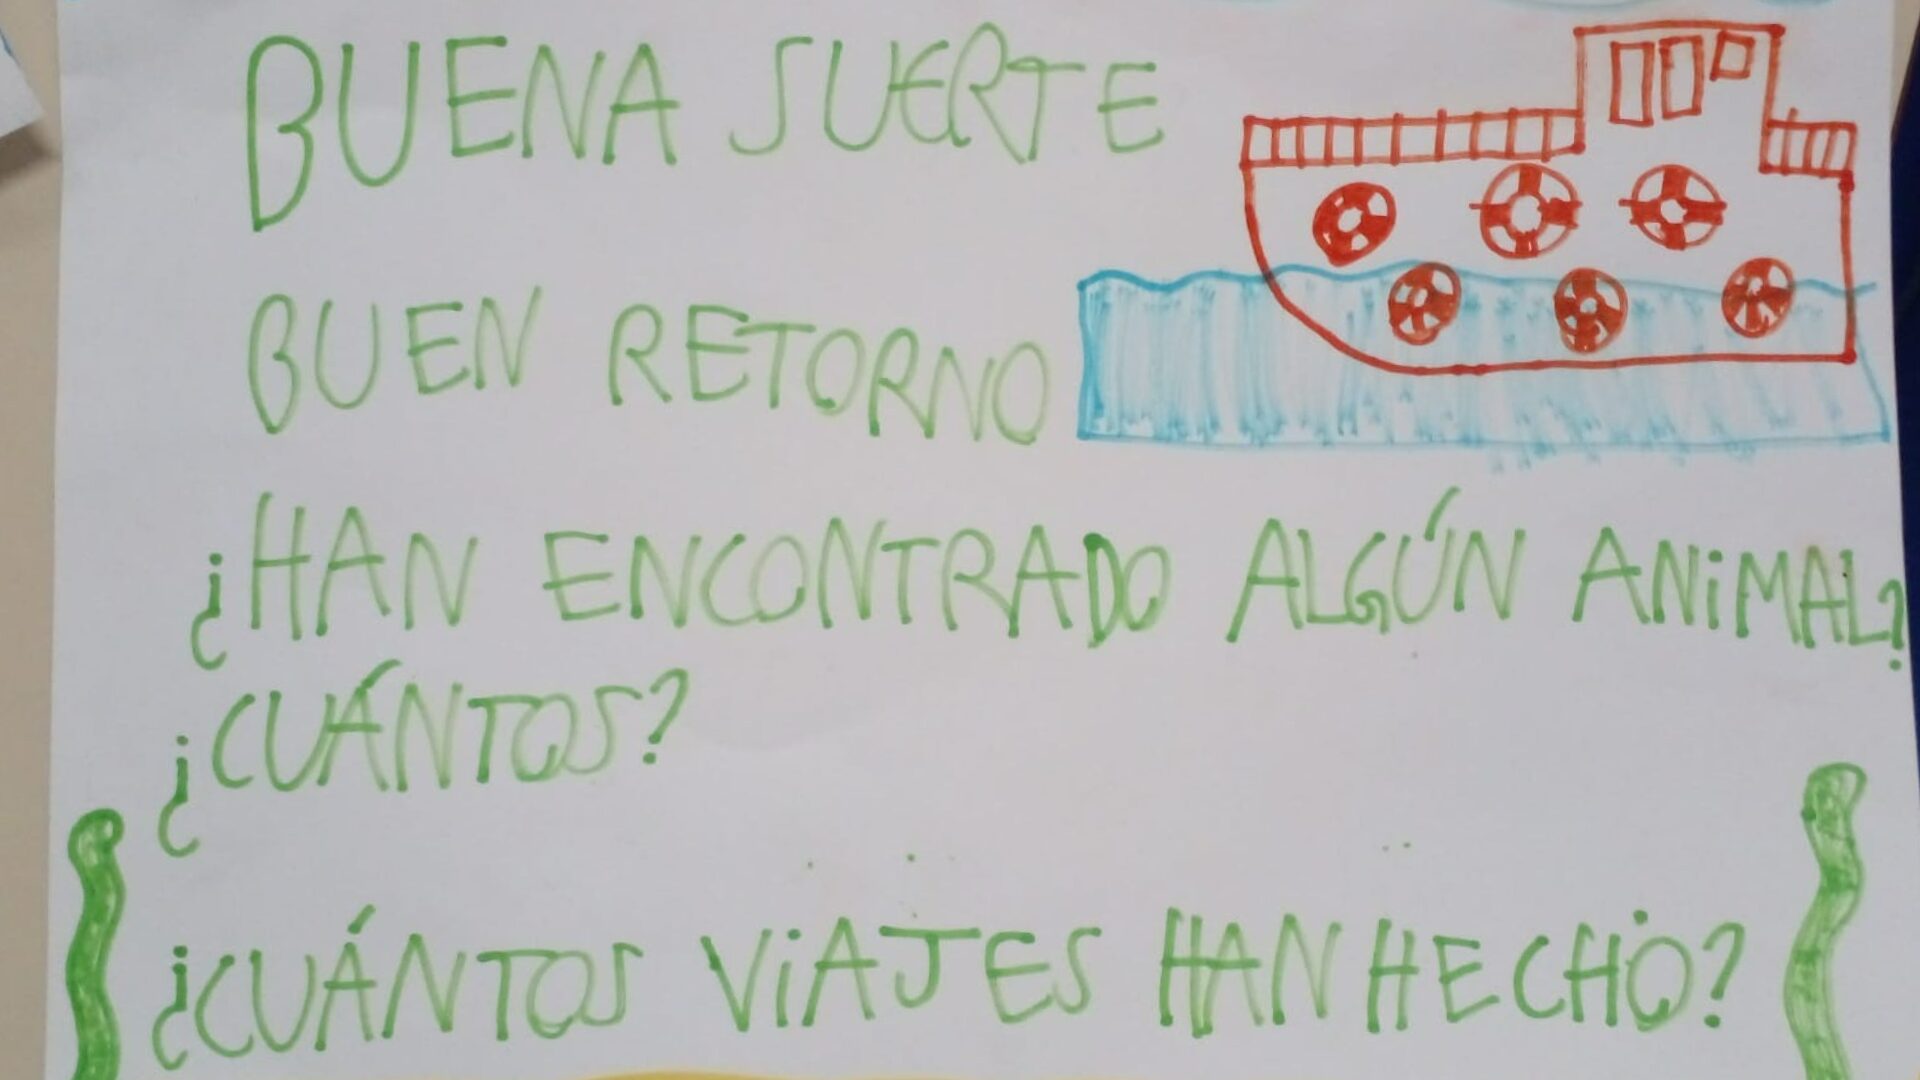 BUENA SUERTE
BUEN RETORNO
¿HAN ENCONTRADO ALGÚN ANiMAL?
¿CUÁNTOS?
¿CUÁNTOS ViAJES HAN HECHO?